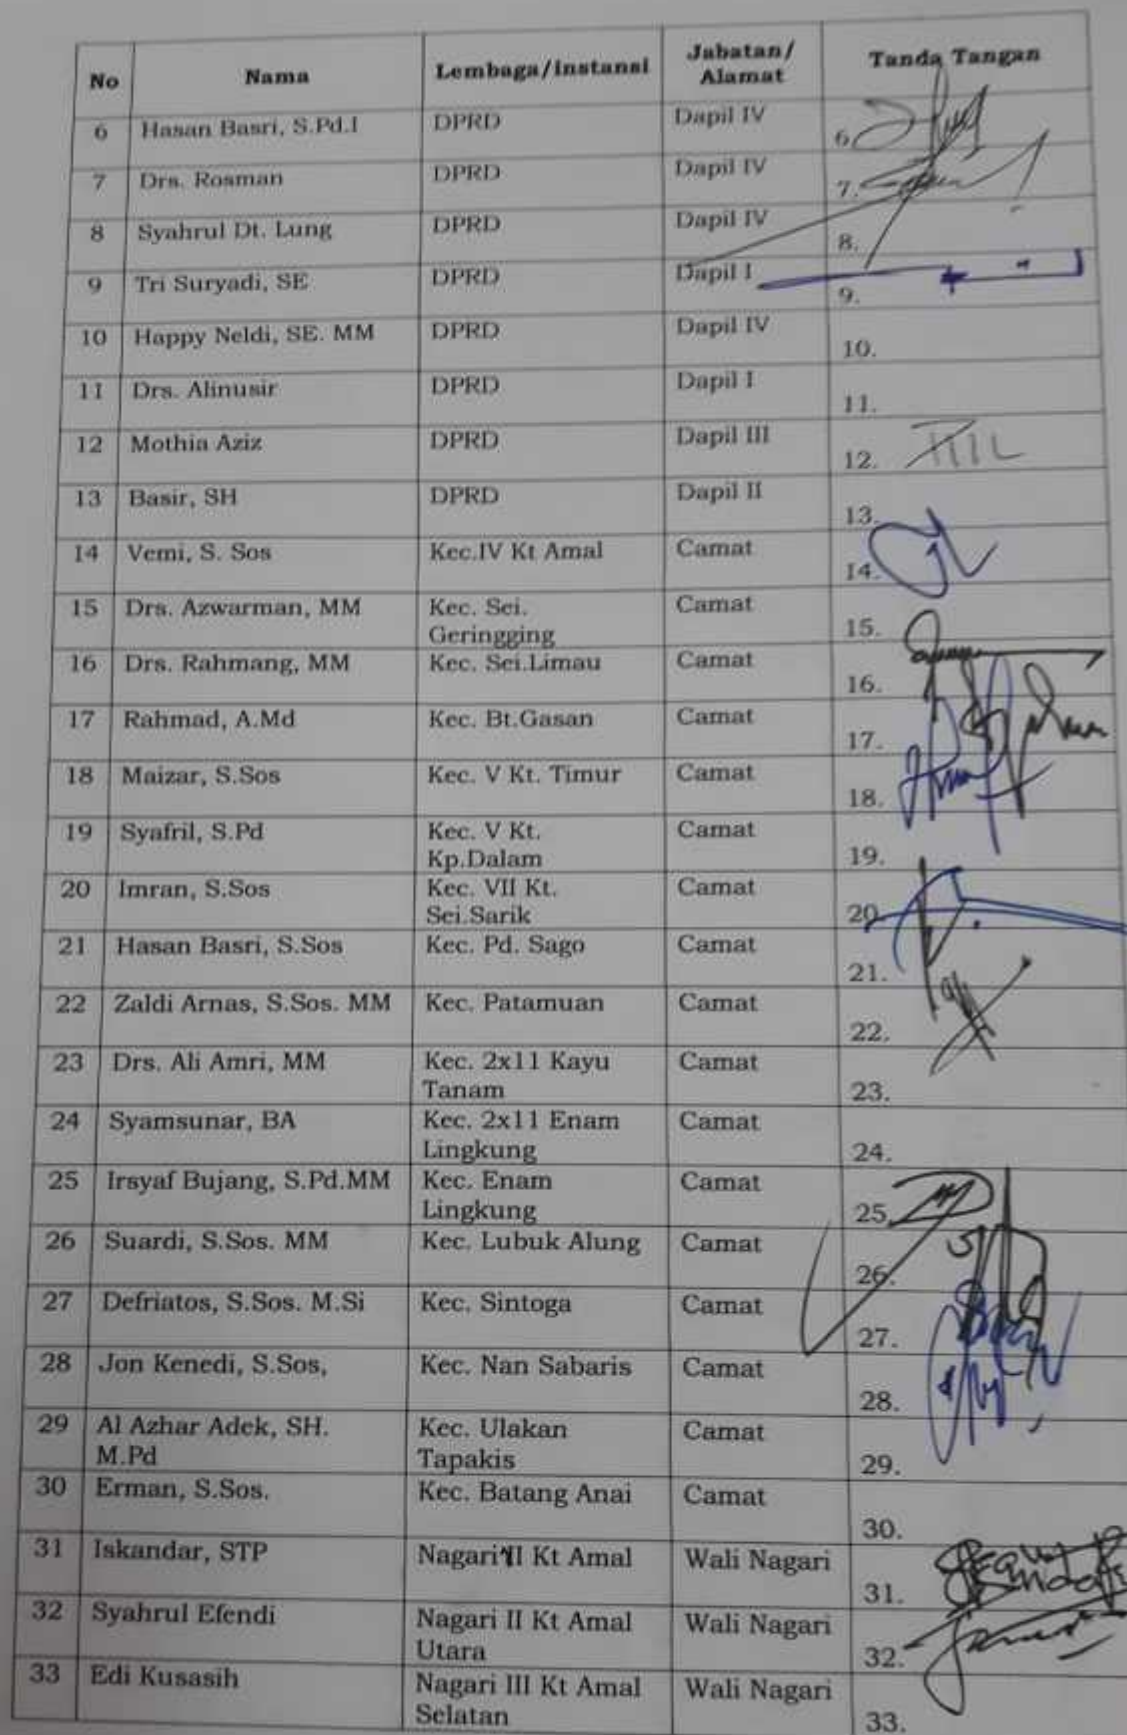 No Nama Lembaga/instansi Jabatan/ Tanda Tangan
Alamat
6 Hasan Basri, S.Pd.I DPRD Dapil IV 6.
7 Drs. Rosman DPRD Dapil IV 7.
8 Syahrul Dt. Lung DPRD Dapil IV 8.
9 Tri Suryadi, SE DPRD Dapil I 9.
10 Happy Neldi, SE. MM DPRD Dapil IV 10.
11 Drs. Alinusir DPRD Dapil I 11.
12 Mothia Aziz DPRD Dapil III 12.
13 Basir, SH DPRD Dapil II 13.
14 Vemi, S. Sos Kec.IV Kt Amal Camat 14.
15 Drs. Azwarman, MM Kec. Sei. Camat 15.
Geringging
16 Drs. Rahmang, MM Kec. Sei.Limau Camat 16.
17 Rahmad, A.Md Kec. Bt.Gasan Camat 17.
18 Maizar, S.Sos Kec. V Kt. Timur Camat 18.
19 Syafril, S.Pd Kec. V Kt. Camat 19.
Kp.Dalam
20 Imran, S.Sos Kec. VII Kt. Camat 20.
Sei.Sarik
21 Hasan Basri, S.Sos Kec. Pd. Sago Camat 21.
22 Zaldi Arnas, S.Sos. MM Kec. Patamuan Camat 22.
23 Drs. Ali Amri, MM Kec. 2x11 Kayu Camat 23.
Tanam
24 Syamsunar, BA Kec. 2x11 Enam Camat 24.
Lingkung
25 Irsyaf Bujang, S.Pd.MM Kec. Enam Camat 25.
Lingkung
26 Suardi, S.Sos. MM Kec. Lubuk Alung Camat 26.
27 Defriatos, S.Sos. M.Si Kec. Sintoga Camat 27.
28 Jon Kenedi, S.Sos, Kec. Nan Sabaris Camat 28.
29 Al Azhar Adek, SH. Kec. Ulakan Camat 29.
M.Pd Tapakis
30 Erman, S.Sos. Kec. Batang Anai Camat 30.
31 Iskandar, STP Nagari II Kt Amal Wali Nagari 31.
32 Syahrul Efendi Nagari II Kt Amal Wali Nagari 32.
Utara
33 Edi Kusasih Nagari III Kt Amal Wali Nagari 33.
Selatan